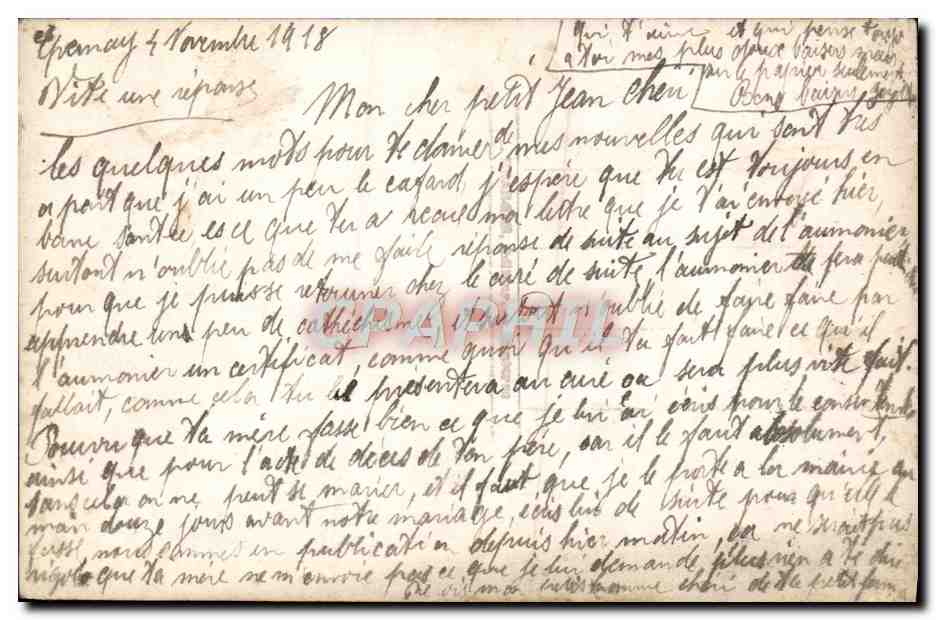 Epernay 4 Novembre 1918
Vite une réponse
Mon cher petit Jean cheri
les quelques mots pour te donner de mes nouvelles qui sont tres
a part que j'ai un peu le cafard, j'espère que tu est toujours en
bone santée esce que tu a recue ma lettre que je t'ai envoye hier,
surtout n'oublie pas de me faire réponse de suite au sujet de l'aumonier
pour que je puisse retourner chez le curé de suite l'aumonier te fera
apprendre un peu de cathéchisme, et surtout n'oublie de faire faire par
l'aumonier un certificat, comme quoi qu'il tu fait faire ce qu'il
fallait, comme cela tu le présentera au curé ca sera plus vite fait.
Pourvu que ta mère fasse bien ce que je lui ai écris pour le
ainsi que pour l'acte de décès de ton père, car il le faut absolument,
sans cela on ne peut se marier, et il faut que je le porte a la mairie au
moin douze jours avant notre mariage, écris lui de suite pour qu'elle le
fasse, nous sommes en publication depuis hier matin, ca ne serait pas
rigolo que ta mère ne m'envoie pas ce que je lui demande, plus rien a te dire
cheri de ta petite femme
qui t'aime et qui pense toujours
a toi, mes plus doux baisers mais
sur le papier seulement
Bons baisers
CPAPHIL